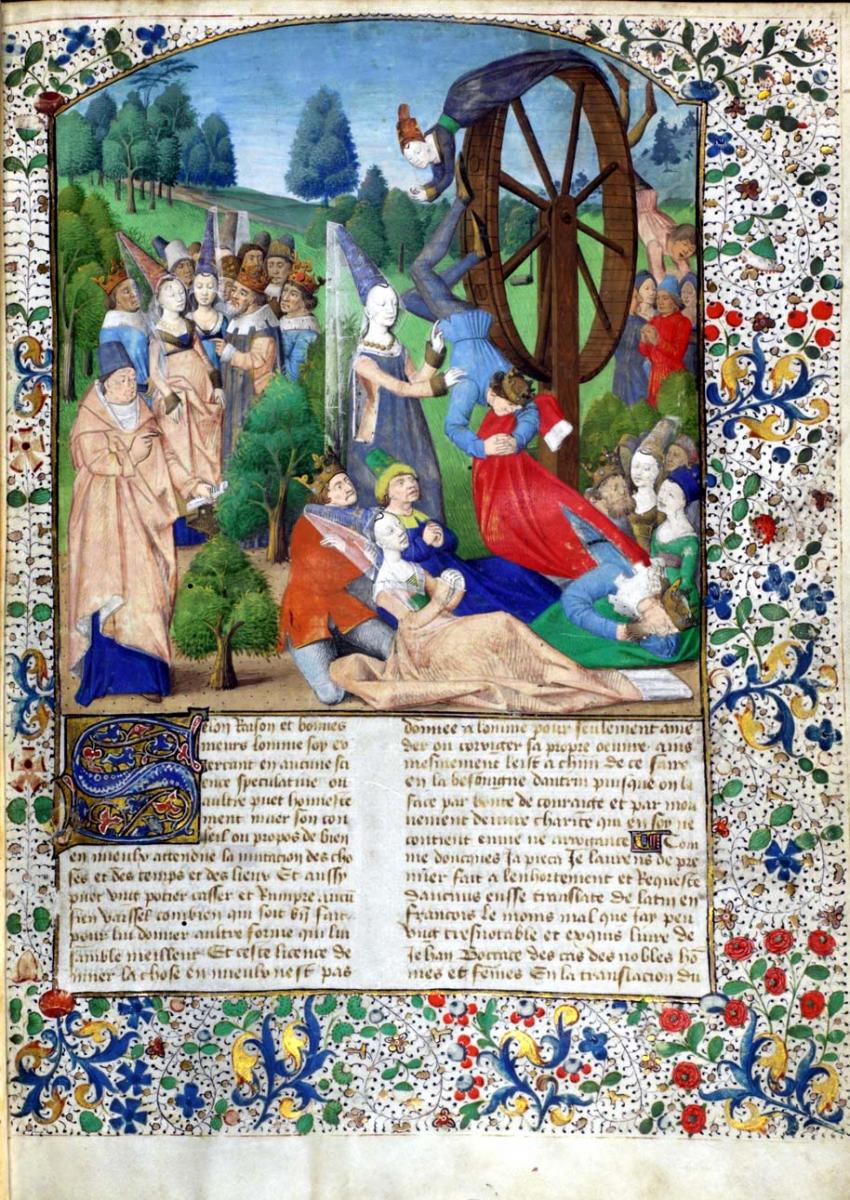 Selon Raison et bonnes
meurs lomme soy ex
ercant en aucune sci
ence speculatiue ou
aultre puet honneste
ment muer son con
seil ou propos de bien
en mieulx attendue la mutacion des cho
ses et des temps et des lieux Et aussy
puet vng potier casser et Rumpre aucū
sien vaissel combien qui soit bn̄ fait
pour lui donner aultre forme qui lui
samble meilleur Et ceste licence de
muer la chose en mieulx nest pas
donnee a lomme pour seulement amē
der ou corrigier sa propre oeuure ains
mesmement leist a chūn de ce faire
en la besoingne dautrui puisque on la
face par bonte de couraige et par mou
uement de vraye charite qui en soy ne
contient enuie ne arrogance Com
me doncques Ja pieca Je laurens de pre
mier fait a lenhortement et Requeste
daucuns eusse translate de latin en
francois le moins mal que Jay peu
vng tresnotable et exquis liure de
Jehan Boccace des cas des nobles hō
mes et fēmes En la translacion du